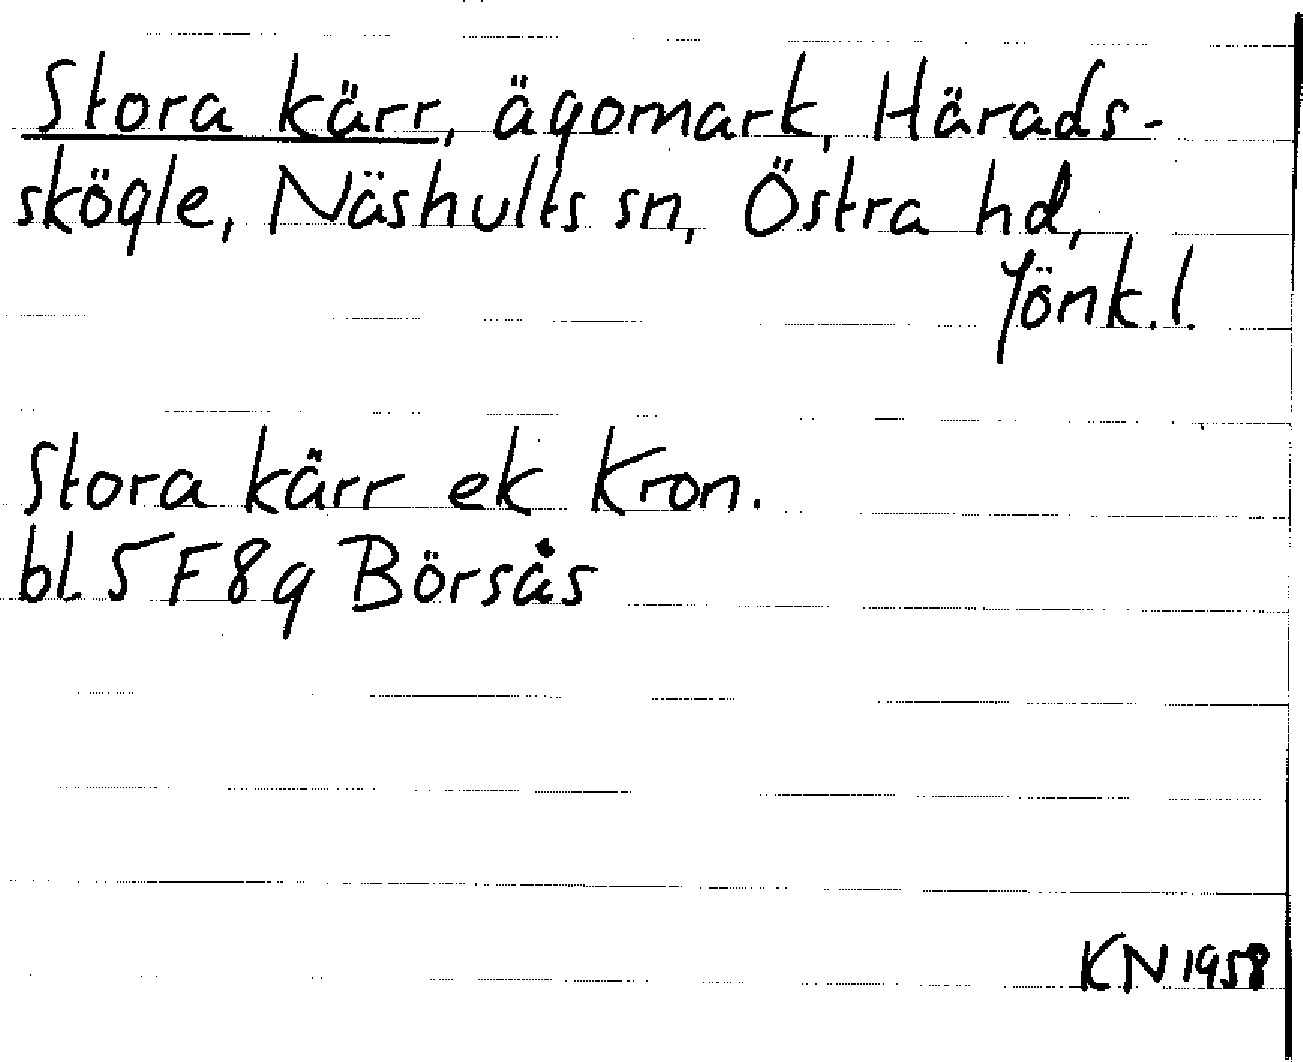 Stora kärr, ägomark, Härads-
skögle, Näshults sn, Östra hd,
Jönk.l.
Stora kärr ek Kron.
bl. 5F8g Börsås
KN 1958